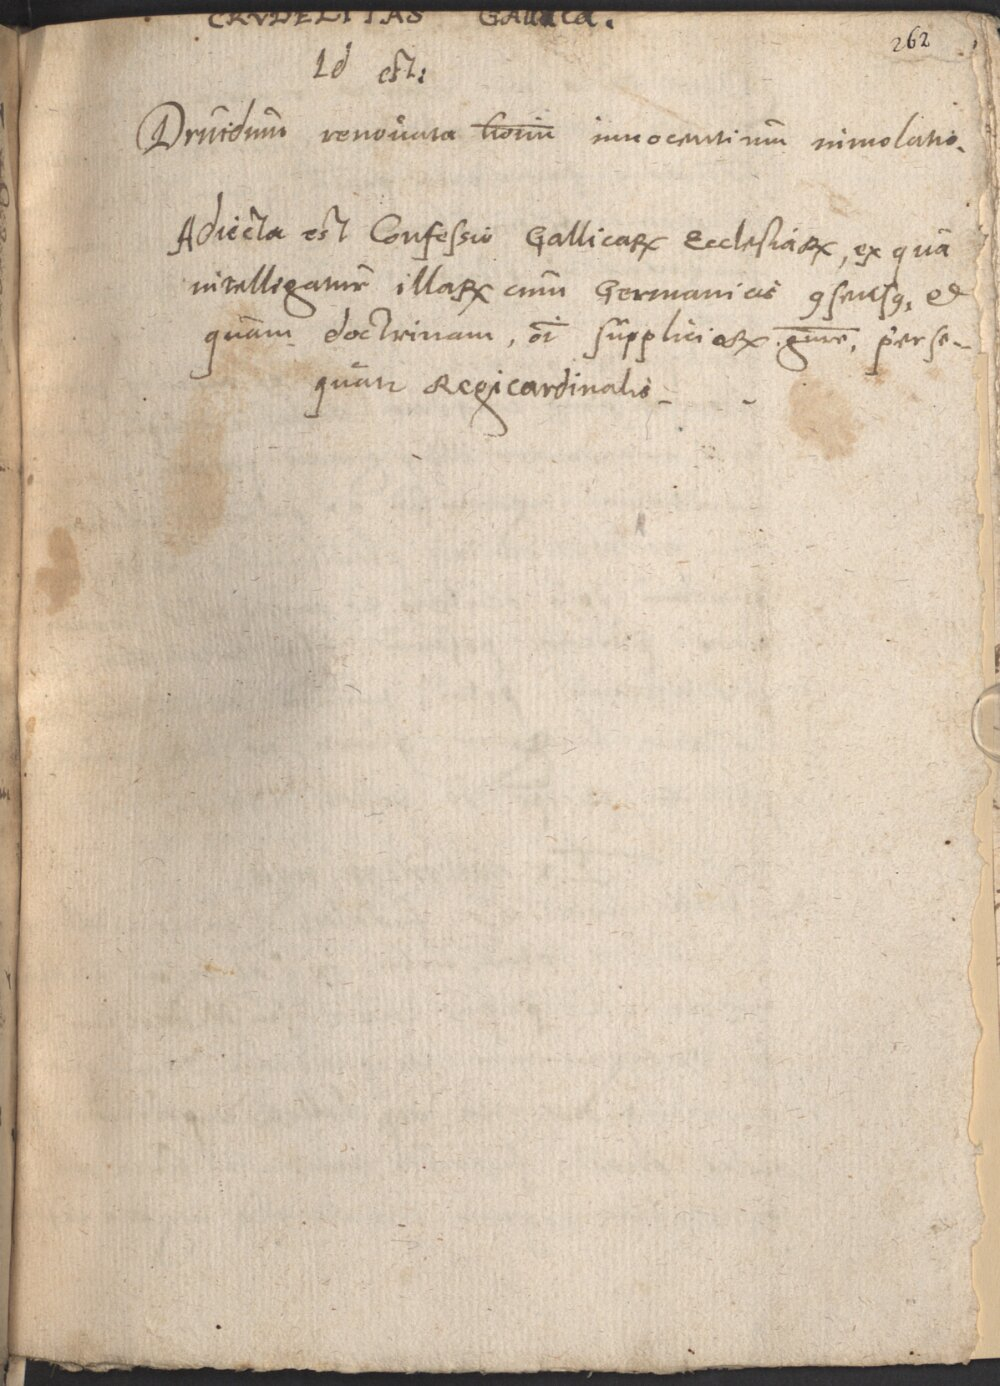 CRVDELITAS Gallica.
262
Id est:
Druidum renouata hōiū innocentium immolatio.
Adiecta est Confessio Gallicarꝝ Ecclesiarꝝ, ex qua
intellegatur illarꝝ cum Germanicis ꝯsensꝰ, et
quam doctrinam, oī suppliciorꝝ gn̄re, perse-
quatr Regicardinalis.